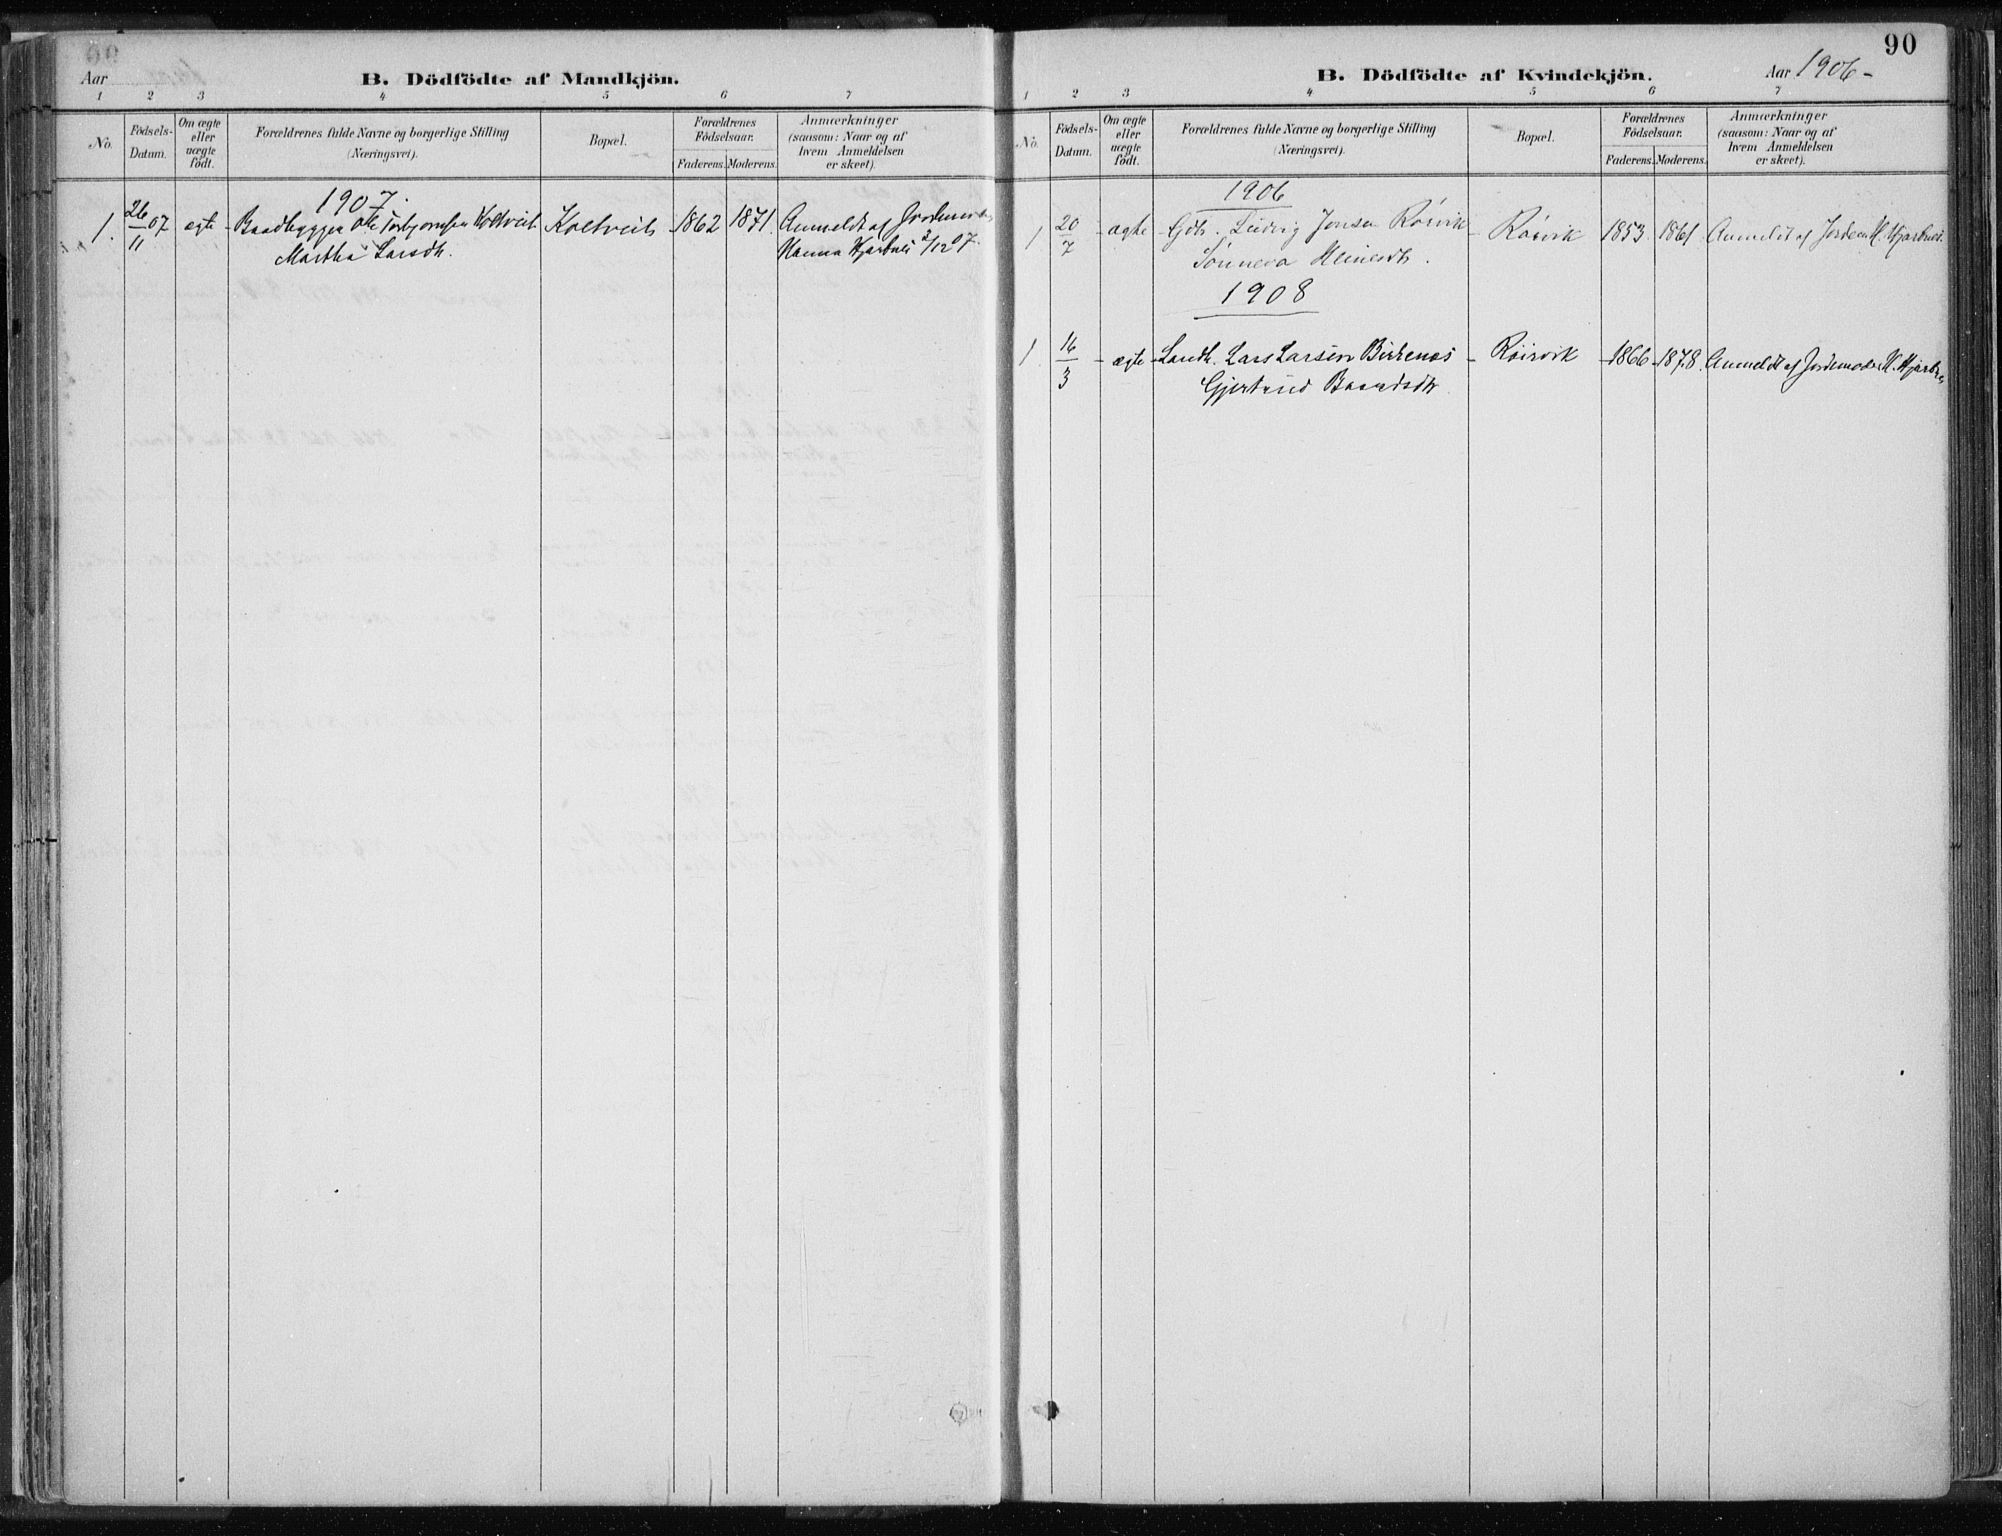 Aar
B. Dödfödte af Mandkjön.
1 2 3 4 5 6 7
No.
Födsels-Datum.
Om ægte eller uægte født.
Forældrenes fulde Navne og borgerlige Stilling (Næringsvei).
Bopæl.
Forældrenes Födselsaar.
Faderens. Moderens.
Anmærkninger (saasom: Naar og af hvem Anmeldelsen er skeet).
1907.
1. 26/11 07 ægte Baadbygger Ole Torbjørnsen Koltveit Koltveit 1862 1871 Anmeldt af Jordemor
Martha Larsdtr. Hanna Hjartnes 2/12 07.
90
B. Dödfödte af Kvindekjön.
Aar 1906-
1 2 3 4 5 6 7
No.
Födsels-Datum.
Om ægte eller uægte födt.
Forældrenes fulde Navne og borgerlige Stilling (Næringsvei).
Bopæl.
Forældrenes Födselsaar.
Faderens. Moderens.
Anmærkninger (saasom: Naar og af hvem Anmeldelsen er skeet).
1906
1 20/7 - ægte - Gdb. Ludvig Jonsen Røirvik - Røirvik 1853 1861 Anmeldt af Jordem H. Hjartnes.
Sønneva Heinesdtr.
1908
1. 16/3 - ægte - Landh. Lars Larsen Birkenes - Röirvik - 1866 - 1878. Anmeldt af Jordemoder H. Hjartnes
Gjertrud Baardsdtr.